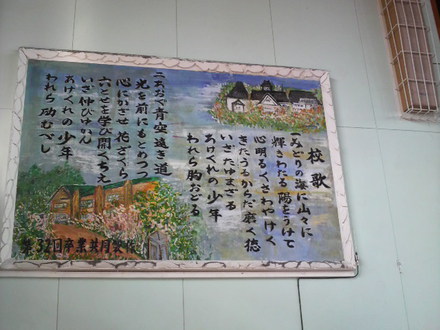 校歌
一みどりの海に山々に
輝きわたる陽をうけて
心明るくさわやけく
きたうるからだ磨く徳
いざたゆまざる
あけくれの少年
われら胸おどる
二あおぐ青空遠き道
光を前にもとめつつ
心にかざせ花ざくら
六いとせを学び開くちえ
いざ伸びゆかん
あけくれの少年
われら励むべし
第32回卒業共同製作